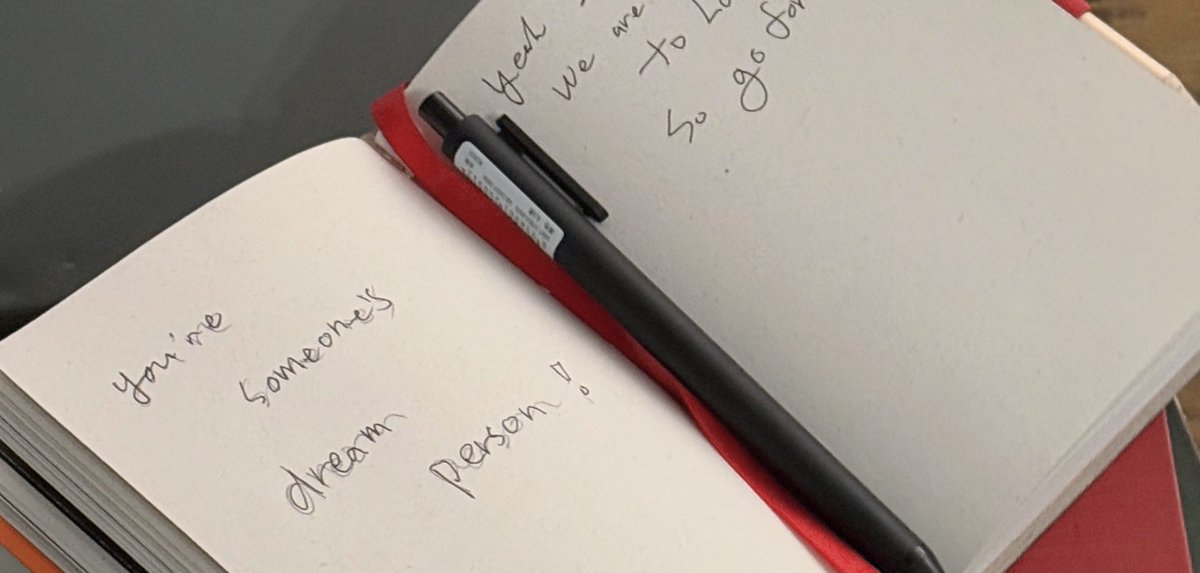 you're
someone's
dream
person!
yeah
we are
to
so go for